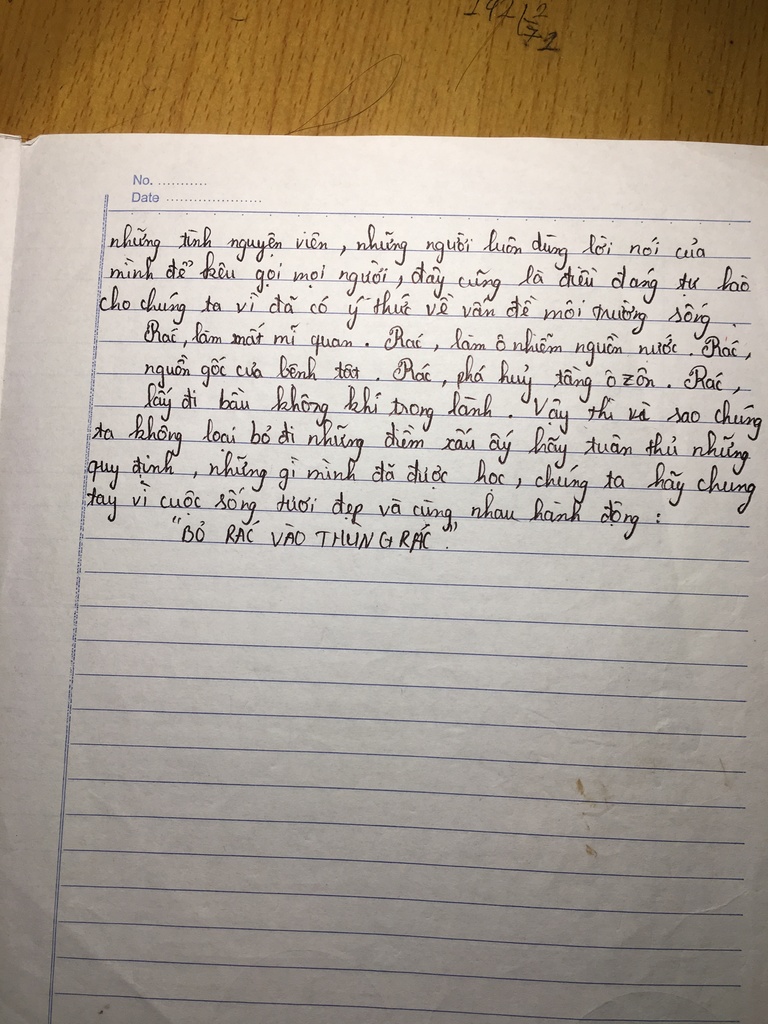 192 2
72
No. ...........
Date .....................
những tình nguyện viên, những người luôn dùng lời nói của
mình để kêu gọi mọi người, đây cũng là điều đáng tự hào
cho chúng ta vì đã có ý thức về vấn đề môi trường sống.
Rác, làm mất mĩ quan. Rác, làm ô nhiễm nguồn nước. Rác,
nguồn gốc của bệnh tật. Rác, phá huỷ tầng ô zôn. Rác,
lấy đi bầu không khí trong lành. Vậy thì vì sao chúng
ta không loại bỏ đi những điểm xấu ấy hãy tuân thủ những
quy định, những gì mình đã được học, chúng ta hãy chung
tay vì cuộc sống tươi đẹp và cùng nhau hành động :
"BỎ RÁC VÀO THÙNG RÁC".